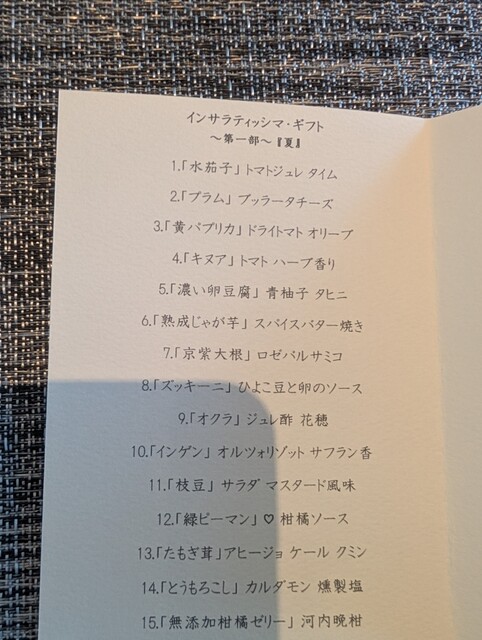 インサラティッシマ・ギフト
～第一部～『夏』
1.「水茄子」トマトジュレ タイム
2.「プラム」ブッラータチーズ
3.「黄パプリカ」ドライトマト オリーブ
4.「キヌア」トマト ハーブ香り
5.「濃い卵豆腐」青柚子 タヒニ
6.「熟成じゃが芋」スパイスバター焼き
7.「京紫大根」ロゼバルサミコ
8.「ズッキーニ」ひよこ豆と卵のソース
9.「オクラ」ジュレ酢 花穂
10.「インゲン」オルツォリゾット サフラン香
11.「枝豆」サラダ マスタード風味
12.「緑ピーマン」♡ 柑橘ソース
13.「たもぎ茸」アヒージョ ケール クミン
14.「とうもろこし」カルダモン 燻製塩
15.「無添加柑橘ゼリー」河内晩柑